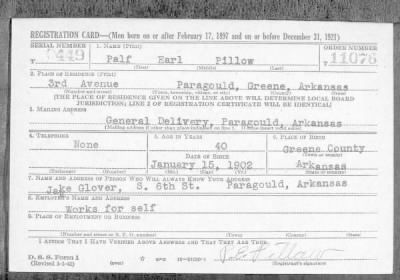 REGISTRATION CARD—(Men born on or after February 17, 1897 and on or before December 31, 1921)
SERIAL NUMBER 1. NAME (Print) ORDER NUMBER
T 449 Palf Earl Pillow T 11076
(First) (Middle) (Last)
2. PLACE OF RESIDENCE (Print)
3rd Avenue Paragould, Greene, Arkansas
(Number and street) (Town, township, village, or city) (County) (State)
[THE PLACE OF RESIDENCE GIVEN ON THE LINE ABOVE WILL DETERMINE LOCAL BOARD
JURISDICTION; LINE 2 OF REGISTRATION CERTIFICATE WILL BE IDENTICAL]
3. MAILING ADDRESS
General Delivery, Paragould, Arkansas
(Mailing address if other than place indicated on line 2. If same insert word same)
4. TELEPHONE 5. AGE IN YEARS 6. PLACE OF BIRTH
None 40 Greene County
DATE OF BIRTH (Town or county)
January 15, 1902 Arkansas
(Exchange) (Number) (Mo.) (Day) (Yr.) (State or country)
7. NAME AND ADDRESS OF PERSON WHO WILL ALWAYS KNOW YOUR ADDRESS
Jake Glover, S. 6th St. Paragould, Arkansas
8. EMPLOYER'S NAME AND ADDRESS
Works for self
9. PLACE OF EMPLOYMENT OR BUSINESS
(Number and street or R. F. D. number) (Town) (County) (State)
I AFFIRM THAT I HAVE VERIFIED ABOVE ANSWERS AND THAT THEY ARE TRUE.
D. S. S. Form 1
(over) Pillow
(Registrant's signature)